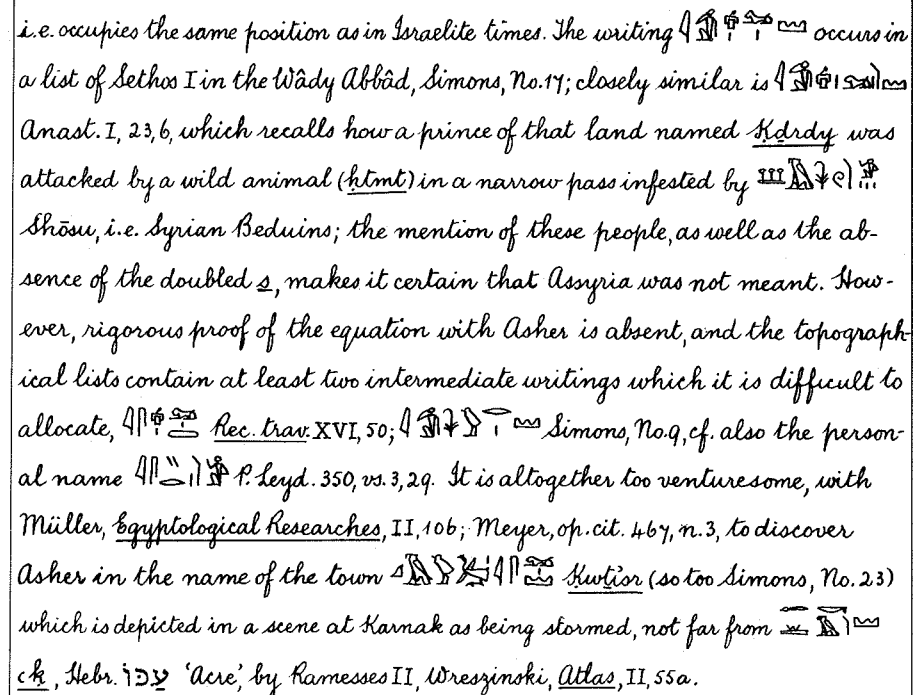 i.e. occupies the same position as in Israelite times. The writing occurs in
a list of Sethos I in the Wâdy Abbâd, Simons, No. 17; closely similar is
Anast. I, 23, 6, which recalls how a prince of that land named Ḳḏrdy was
attacked by a wild animal (ḥtmt) in a narrow pass infested by
Shōsu, i.e. Syrian Beduins; the mention of these people, as well as the ab-
sence of the doubled s, makes it certain that Assyria was not meant. How-
ever, rigorous proof of the equation with Asher is absent, and the topograph-
ical lists contain at least two intermediate writings which it is difficult to
allocate, Rec. trav. XVI, 50; Simons, No. 9, cf. also the person-
al name P. Leyd. 350, vs. 3, 29. It is altogether too venturesome, with
Müller, Egyptological Researches, II, 106; Meyer, op. cit. 467, n. 3, to discover
Asher in the name of the town Ḳwṯı͗sr (so too Simons, No. 23)
which is depicted in a scene at Karnak as being stormed, not far from
ꜥk, Hebr. עכו 'Acre', by Ramesses II, Wreszinski, Atlas, II, 55a.